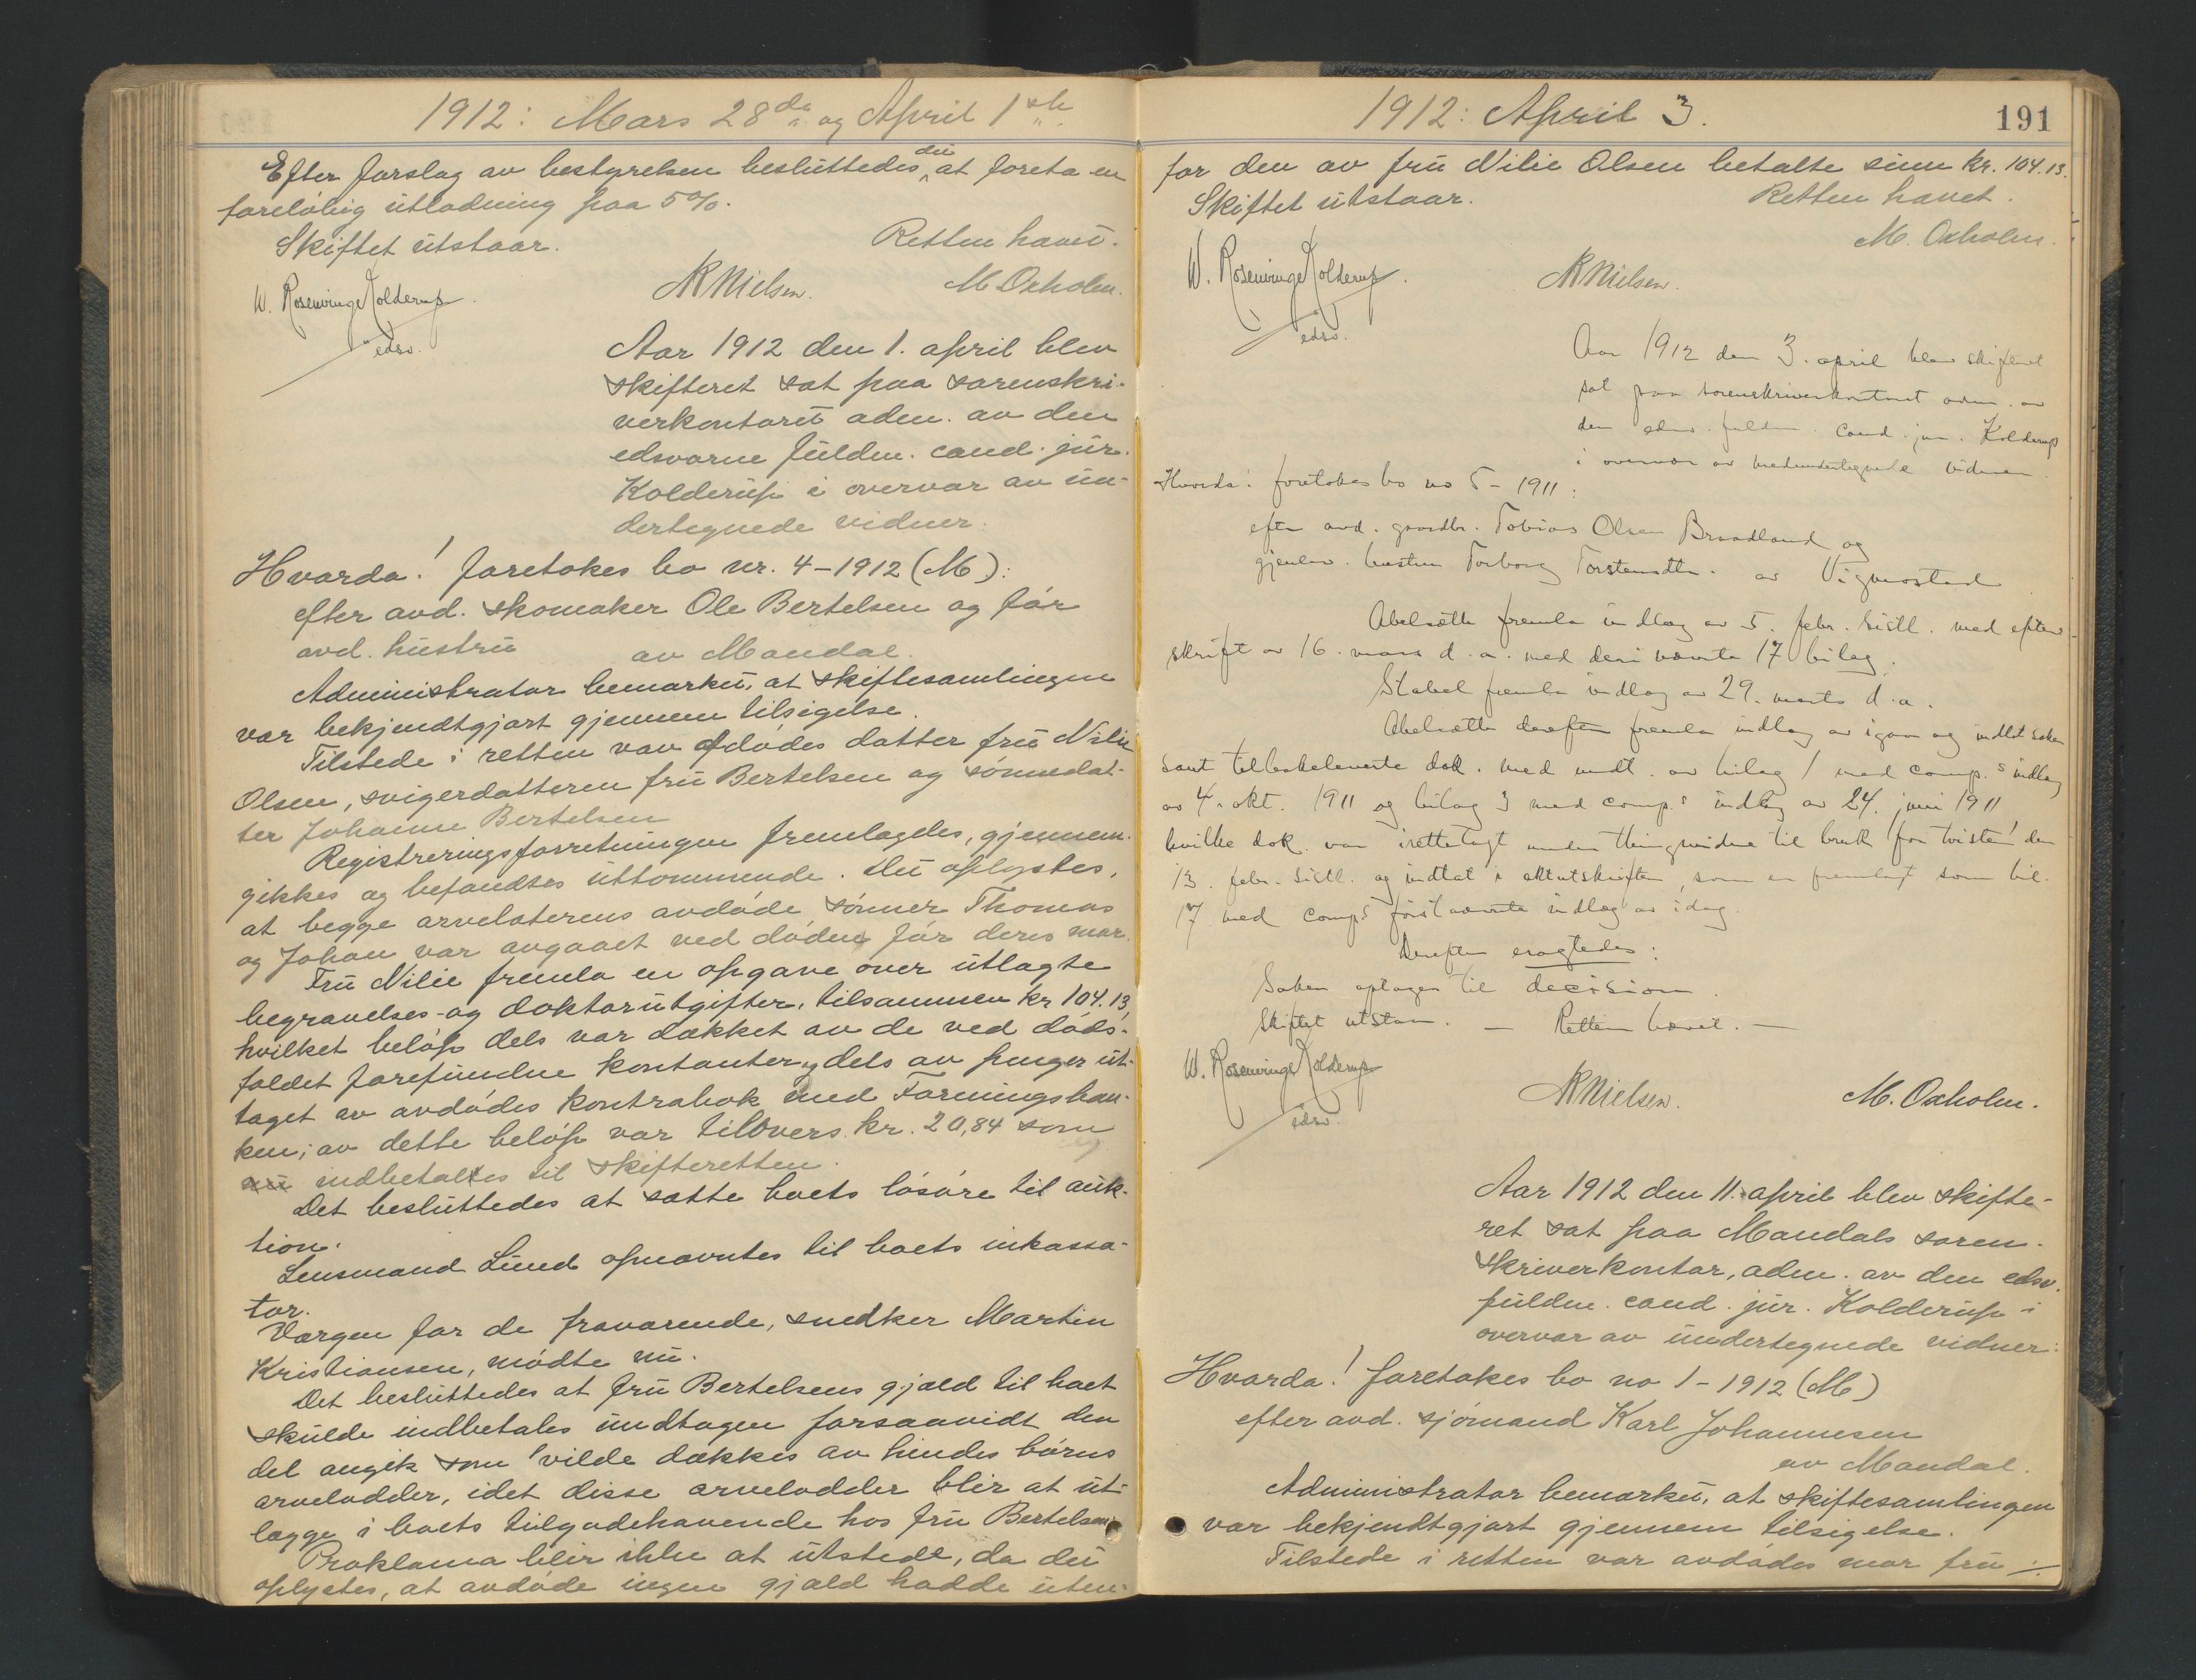 1912: Mars 28de og April 1ste
Efter forslag av bestyrelsen besluttedes det at foreta en
foreløbig utlodning paa 5%.
Skiftet utstaar.
Retten hævet.
W. Rosenvinge Kolderup
edsv.
NNielsen.
M. Oxholm.
Aar 1912 den 1. april blev
skifteret sat paa sorenskri-
verkontoret adm. av den
edsvorne fuldm. cand. jur.
Kolderup i overvær av un-
dertegnede vidner.
Hvorda! foretokes bo nr. 4-1912 (M):
efter avd. skomaker Ole Bertelsen og før
avd. hustru av Mandal.
Administrator bemærket, at skiftesamlingen
var bekjendtgjort gjennem tilsigelse.
Tilstede i retten var avdødes datter fru Nilie
Olsen, svigerdatteren fru Bertelsen og sønnedat-
ter Johanne Bertelsen
Registreringsforretningen fremlagdes, gjennem-
gikkes og befandtes uttømmende. Det oplystes,
at begge arveladerens avdøde sønner Thomas
og Johan var avgaaet ved døden før deres mor.
Fru Nilie fremla en opgave over utlagte
begravelses- og doktorutgifter, tilsammen kr 104.13,
hvilket beløp dels var dækket av de ved døds-
faldet forefundne kontanter og dels av penger ut-
taget av avdødes kontrabok med Foreningsban-
ken; av dette beløp var tilovers kr. 20,84 som
indbetaltes til skifteretten.
Det besluttedes at sætte boets løsøre til auk-
tion.
Lensmand Lund opnævntes til boets inkassa-
tor.
Værgen for de fraværende, snedker Martin
Kristiansen, mødte nu.
Det besluttedes at fru Bertelsens gjæld til boet
skulde indbetales undtagen forsaavidt den
del angik som vilde dækkes av hendes børns
arvelodder, idet disse arvelodder blir at ut-
lægge i boets tilgodehavende hos fru Bertelsen
Proklama blir ikke at utstede, da det
oplystes, at avdøde ingen gjæld hadde uten-
1912: April 3.
191
for den av fru Nilie Olsen betalte sum kr. 104.13.
Skiftet utstaar.
Retten hævet.
M. Oxholm.
W. Rosenvinge Kolderup
edsv.
NNielsen.
Aar 1912 den 3. april blev skifteret
sat paa sorenskriverkontoret adm. av
den edsv. fuldm. cand. jur. Kolderup
i overvær av medundertegnede vidner.
Hvorda: foretokes bo no 5-1911:
efter avd. gaardbr. Tobias Olsen Braadland og
gjenlev. hustru Torborg Torstensdtr. av Vigmostad
Abelsætte fremla indlæg av 5. febr. sistl. med efter-
skrift av 16. mars d.a. med deri nævnte 17 bilag.
Stabel fremla indlæg av 29. marts d.a.
Abelsætte derefter fremla indlæg av igaar og indlot saken
samt tilbakeleverte dok. med undt. av bilag 1 med comp.s indlæg
av 4. okt. 1911 og bilag 3 med comp.s indlæg av 24. juni 1911
hvilke dok. var irettelagt under thingsvidne til bruk for tvisten den
13. febr. sistl. og indtat i aktutskriften, som er fremlagt som bil.
17 med comps førstnævnte indlæg av idag.
Derefter eragtedes:
Saken optages til decision.
Skiftet utstaar. — Retten hævet. —
W. Rosenvinge Kolderup
edsv.
NNielsen.
M. Oxholm.
Aar 1912 den 11. april blev skifte-
ret sat paa Mandals soren-
skriverkontor, adm. av den edsv.
fuldm. cand. jur. Kolderup i
overvær av undertegnede vidner:
Hvorda! foretokes bo no 1-1912 (M)
efter avd. sjømand Karl Johannesen
av Mandal.
Administrator bemærket, at skiftesamlingen
var bekjendtgjort gjennem tilsigelse.
Tilstede i retten var avdødes mor fru ./.